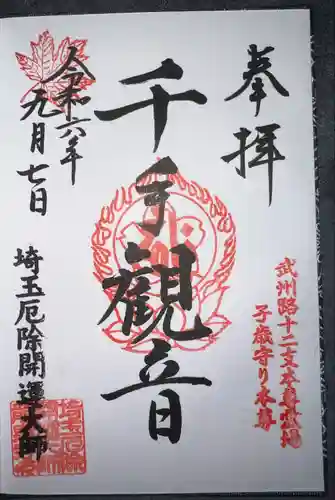 奉拝
武州路十二支本尊霊場
子歳守り本尊
千手観音
令和六年
九月七日
埼玉厄除開運大師